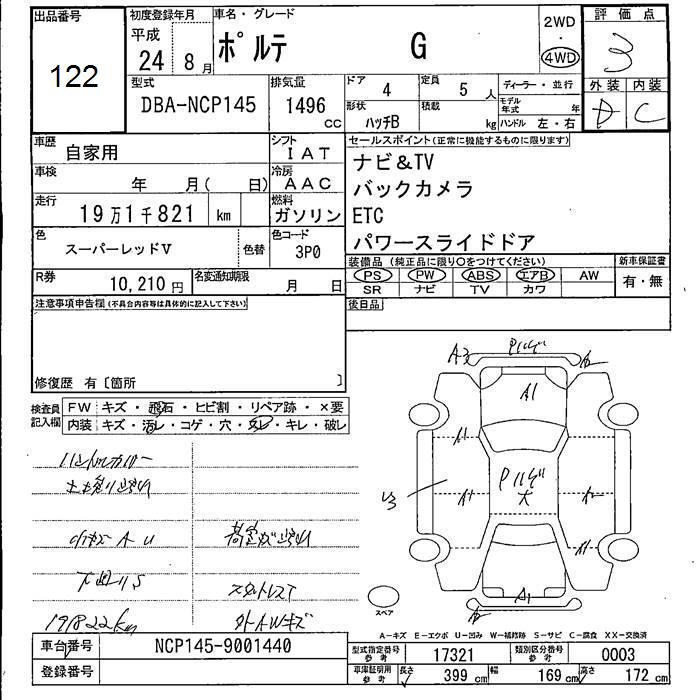 出品番号
122
初度登録年月
平成
24 8 月
車名・グレード
ポルテ G
2WD
・
4WD
評価点
3
外装 内装
D C
型式
DBA-NCP145
排気量
1496
cc
ドア 4
定員 5 人
ディーラー・並行
形状 ハッチB
積載 kg
モデル年式 年
ハンドル 左・右
車歴
自家用
シフト
IAT
セールスポイント(正常に機能するものに限ります)
ナビ&TV
バックカメラ
ETC
パワースライドドア
車検
年 月( 日)
冷房
AAC
走行
19万1千821 km
燃料
ガソリン
色
スーパーレッドV
色替
色コード
3P0
装備品(純正品に限り○をつけてください)
新車保証書
PS PW ABS エアB AW
SR ナビ TV カワ
有・無
R券
10,210 円
名変通知期限
月 日
後日品
注意事項申告欄(不具合内容等は具体的に記入して下さい)
修復歴 有〔箇所 〕
検査員
記入欄
FW キズ・飛石・ヒビ割・リペア跡・×要
内装 キズ・汚レ・コゲ・穴・スレ・キレ・破レ
A3
A1
A1
U3
大
A1
スペア
下廻りS
スタットレスT
191822km
外AWキズ
A-キズ E-エクボ U-凹み W-補修跡 S-サビ C-腐食 XX-交換済
車台番号
NCP145-9001440
登録番号
型式指定番号
参考
17321
類別区分番号
参考
0003
車庫証明用
参考
長さ
399 cm
幅
169 cm
高さ
172 cm